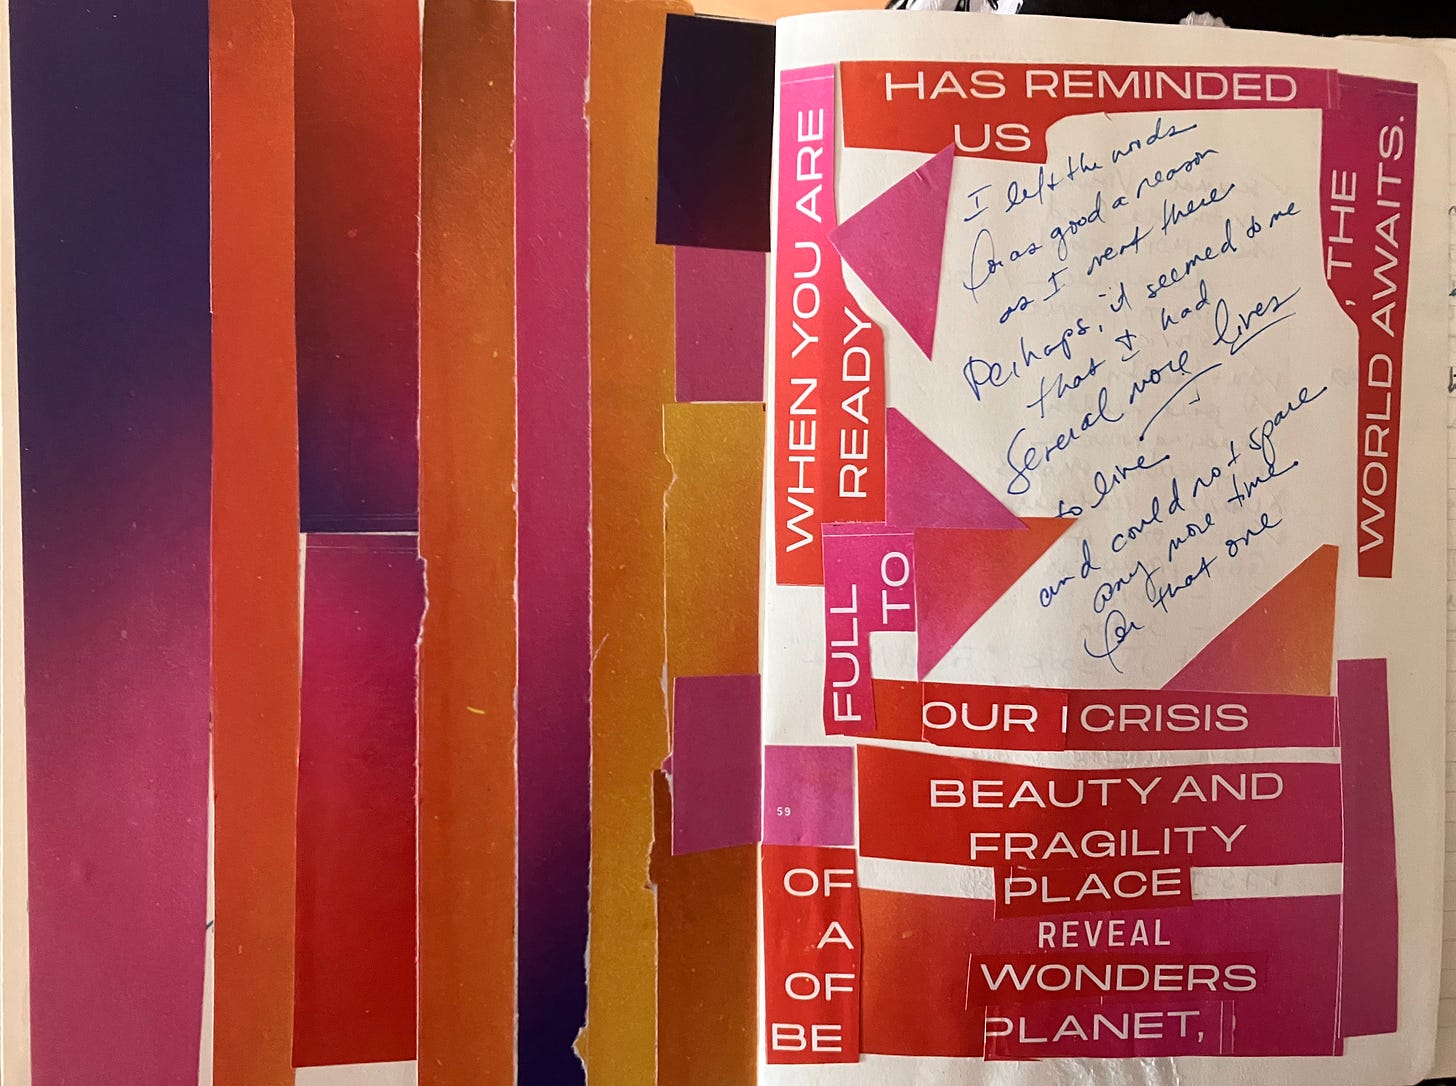 HAS REMINDED
US
WHEN YOU ARE
READY
, THE
WORLD AWAITS.
I left the woods
for as good a reason
as I went there
Perhaps, it seemed to me
that I had
several more lives
to live
and could not spare
any more time
for that one
FULL
TO
OUR CRISIS
BEAUTY AND
FRAGILITY
59
OF
A
OF
BE
PLACE
REVEAL
WONDERS
PLANET,